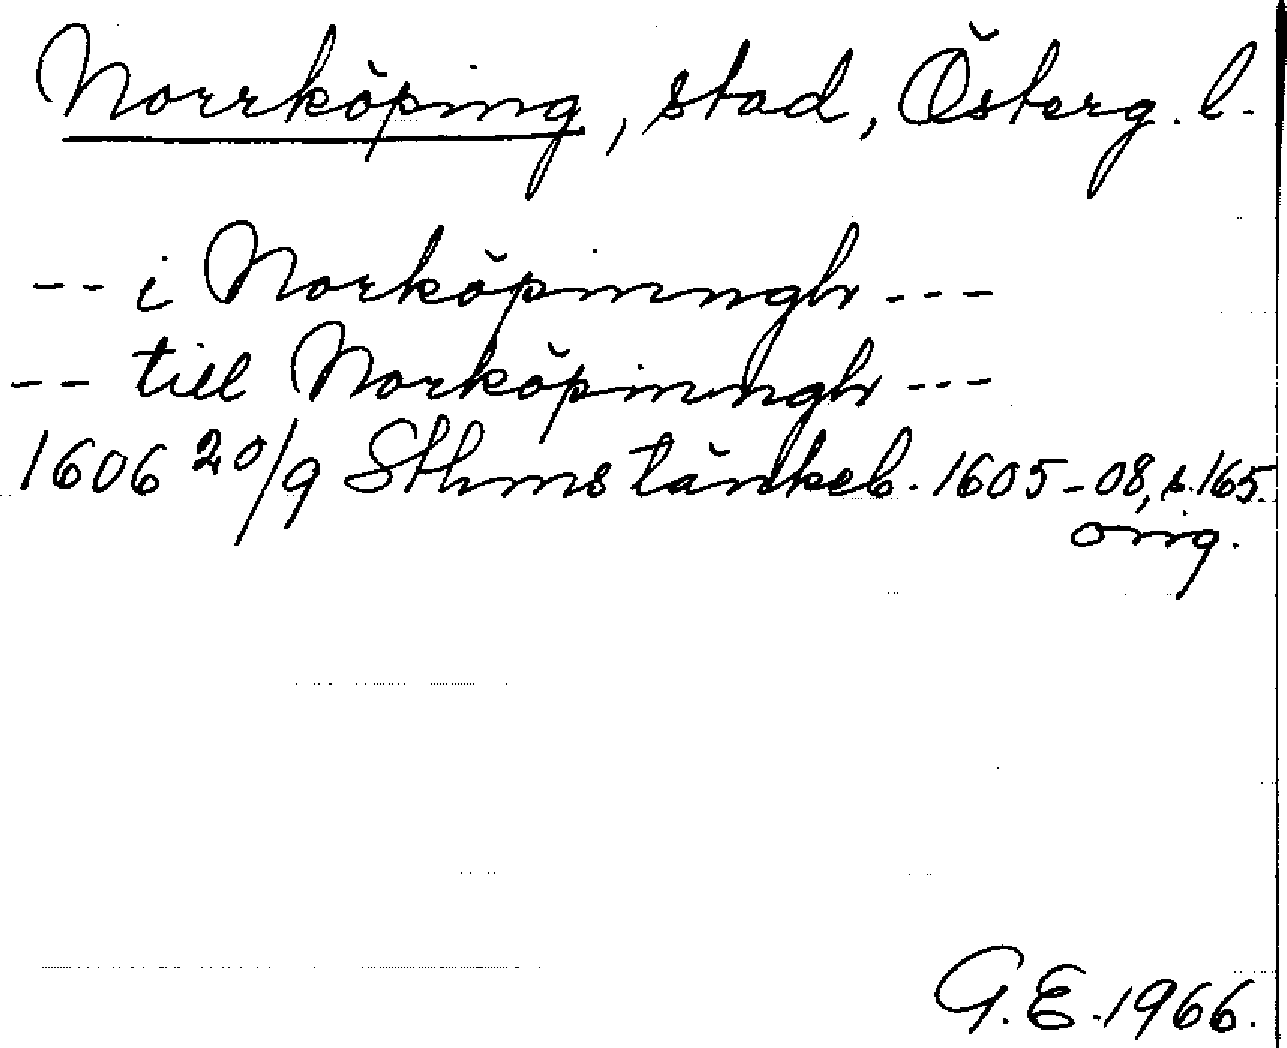 Norrköping, stad, Österg. l.
-- i Norköpinngh ---
-- till Norköpinngh ---
1606 20/9 Sthms tänkeb. 1605-08, s. 165.
orig.
G. E. 1966.